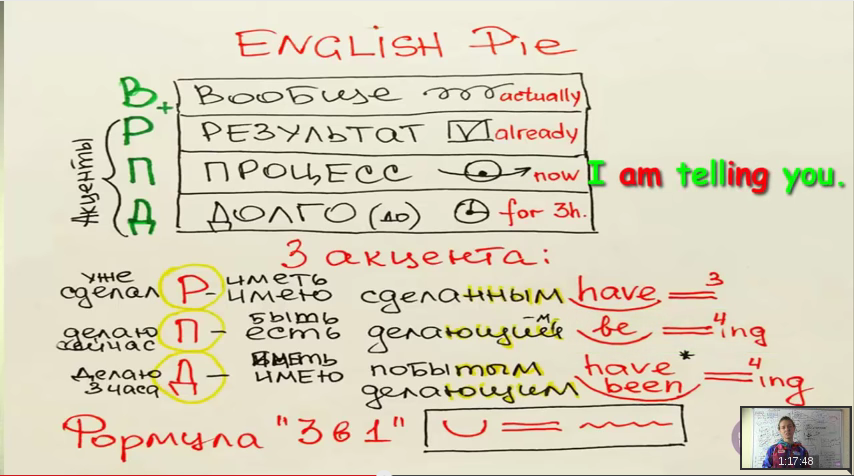 ENGLISH Pie
В+ Вообще actually
Р РЕЗУЛЬТАТ V already
П ПРОЦЕСС now I am telling you.
Д ДОЛГО (до) for 3h.
Акценты
3 акцента:
уже сделал Р - иметь имею сделанным have 3
делаю сейчас П - быть есть делающим be 4 ing
Делаю 3 часа Д - иметь имею побытым делающим have been * 4 ing
Формула "3 в 1"
1:17:48